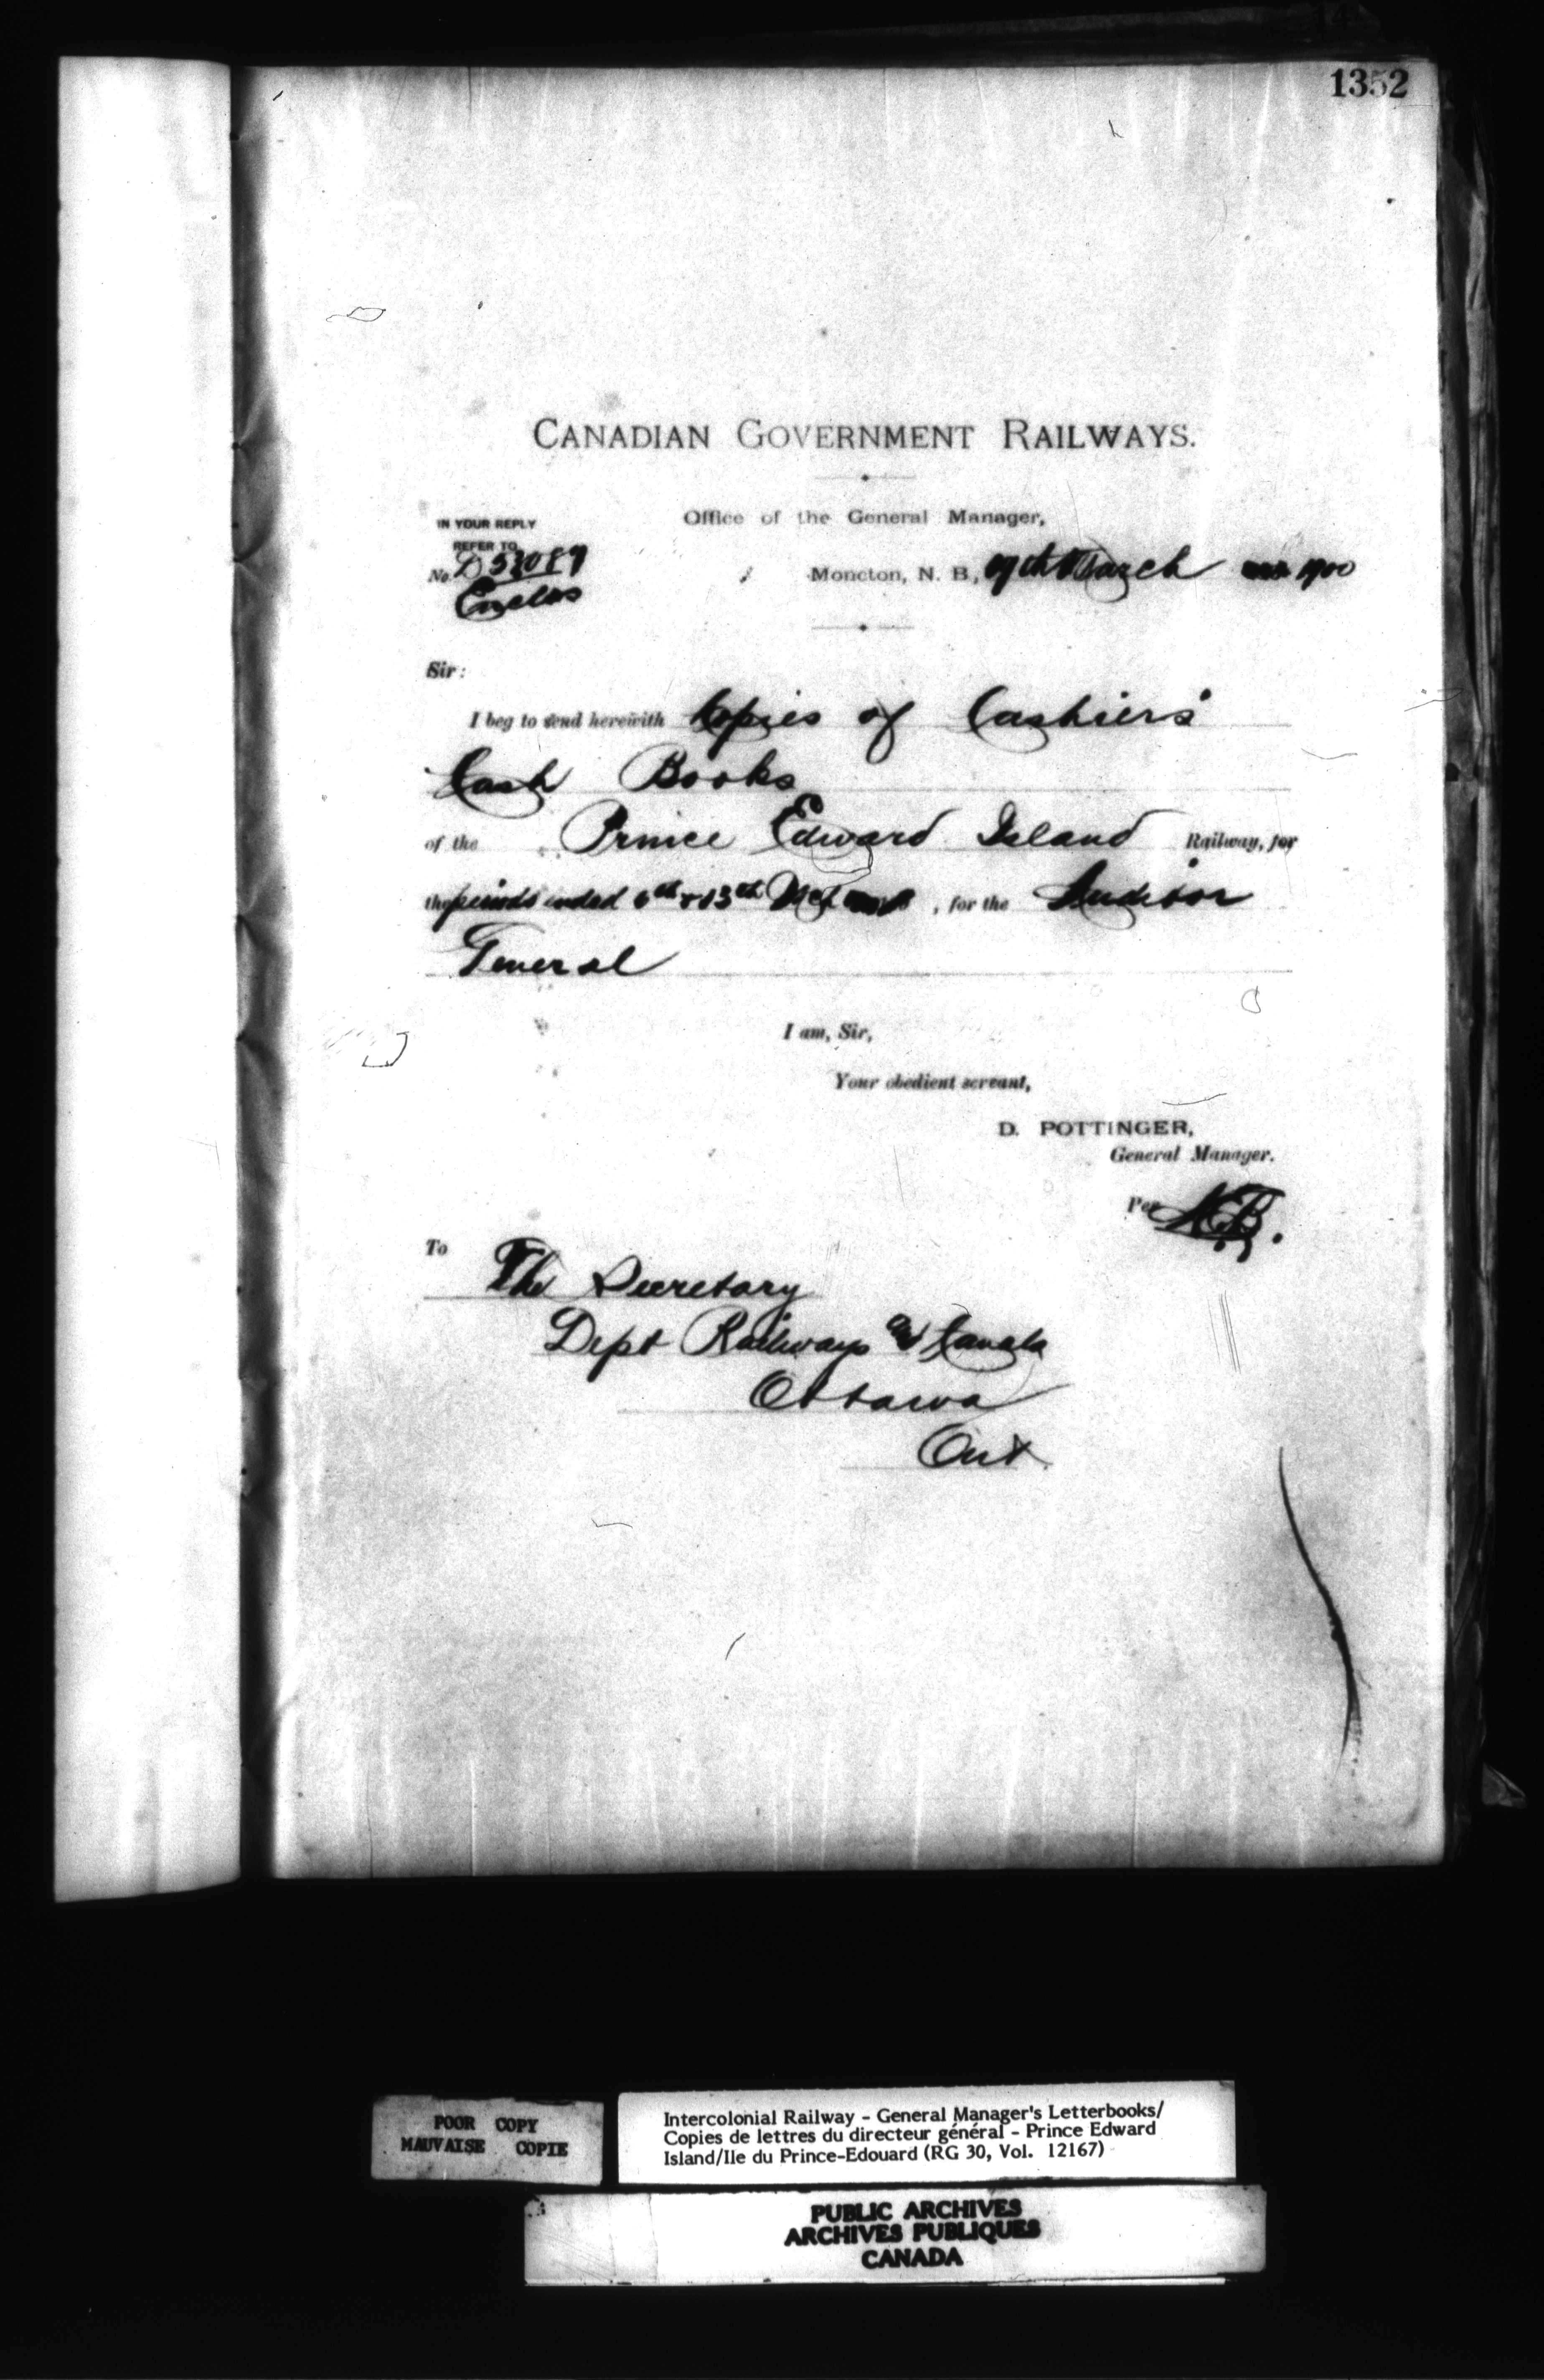 1352
CANADIAN GOVERNMENT RAILWAYS.
Office of the General Manager,
IN YOUR REPLY
REFER TO
No. D 53089
Enclos
Moncton, N. B., 19th March 1900
Sir:
I beg to send herewith Copies of Cashiers'
Cash Books
of the Prince Edward Island Railway, for
the periods ended 6th & 13th Mch , for the Auditor
General
I am, Sir,
Your obedient servant,
D. POTTINGER,
General Manager.
Per
To The Secretary
Dept Railways and Canals
Ottawa
Ont.
POOR COPY
MAUVAISE COPIE
Intercolonial Railway - General Manager's Letterbooks/
Copies de lettres du directeur général - Prince Edward
Island/Ile du Prince-Edouard (RG 30, Vol. 12167)
PUBLIC ARCHIVES
ARCHIVES PUBLIQUES
CANADA